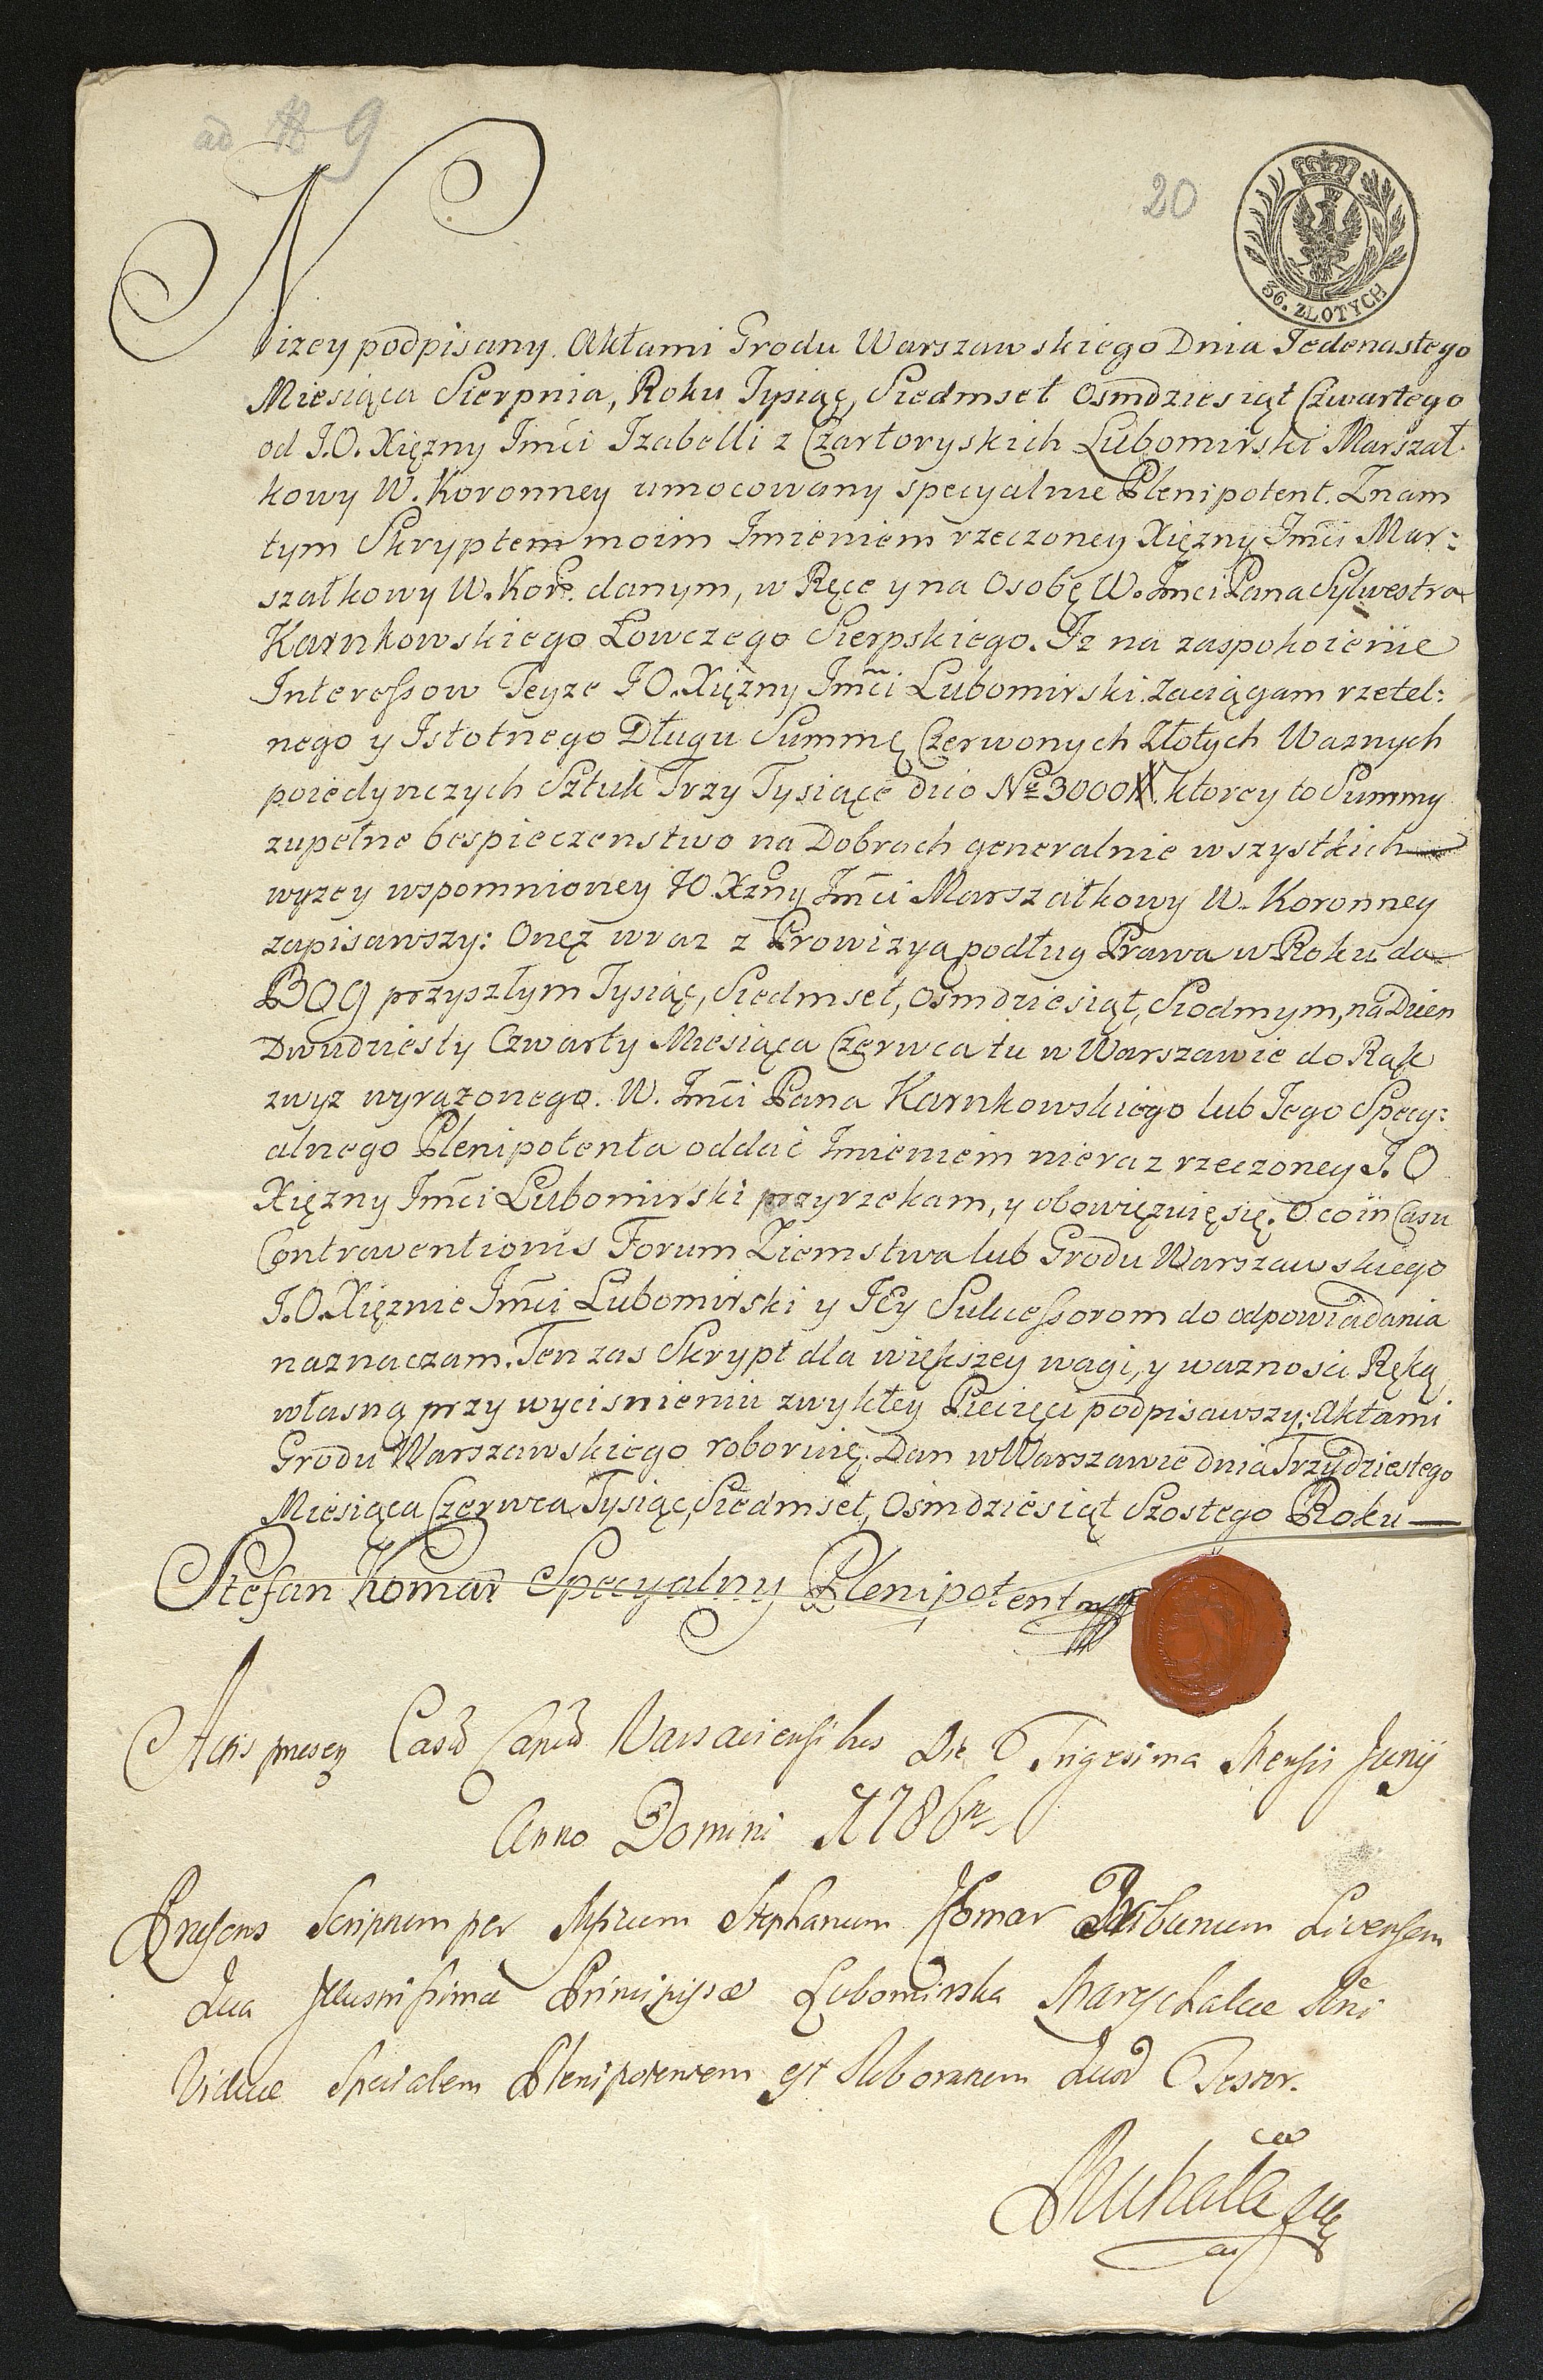 ad № 9
20
36. ZŁOTYCH
Nizey podpisany. Aktami Grodu Warszawskiego Dnia Jedenastego
Miesiąca Sierpnia, Roku Tysiąc, Siedmset osmdziesiąt Czwartego
od J.O. Xięzny Jmci Izabelli z Czartoryskich Lubomirski Marszał:
kowy W. Koronney umocowany specyalnie Plenipotent. Znam
tym Skryptem moim Imieniem rzeczoney Xięzny Jmci Mar:
szałkowy W. Kore. danym, w Ręce y na Osobę W. Jmci Pana Sylwestra
Karnkowskiego Łowczego Sierpskiego. Iz na zaspokoienie
Interessow Teyze J O. Xięzny Jmci Lubomirski. Zaciągam rzetel:
nego y Istotnego Długu Summę Czerwonych Złotych Waznych
poiedynczych Sztuk Trzy Tysiące dico No 3000 ktorey to Summy
zupełne bespieczenstwo na Dobrach generalnie wszystkich
wyzey wspomnioney JO. Xzny Jmci Marszałkowy W. Koronney
zapisawszy: Onęz wraz z Prowizyą podług Prawa w Roku da
BOG przyszłym Tysiąc, Siedmset, Osmdziesiąt, Siodmym, na Dzien
Dwudziesty Czwarty Miesiąca Czerwca tu w Warszawie do Rąk
zwyz wyrazonego. W. Jmci Pana Karnkowskiego lub Jego Specy:
alnego Plenipotenta oddać Imieniem nieraz rzeczoney J. O
Xięzny Jmci Lubomirski przyrzekam, y obowięzuię się. O co in Casu
Contraventionis Forum Ziemstwa lub Grodu Warszawskiego
J.O. Xięznie Jmci Lubomirski y JEy Sukcessorom do odpowiadania
naznaczam. Ten zas Skrypt dla większey wagi, y waznosci Ręką
własną przy wycisnieniu zwykłey Pieczęci podpisawszy: Aktami
Grodu Warszawskiego roboruię. Dan w Warszawie dnia Trzydziestego
Miesiąca Czerwca Tysiąc, Siedmset, Osmdziesiąt Szostego Roku
Stefan Komar Specyalny Plenipotent mpp
Actis presen Varsaviensibus Die Trigesima Mensis Junij
Anno Domini 1786
Præsens Scriptum per Stephanum Komar Tribunum Livensem
Qua Illustrissimæ Principissæ Lubomirska Marschalcæ Rni
Viduæ Specialem Plenipotentem est Roboratum Quod Testor.